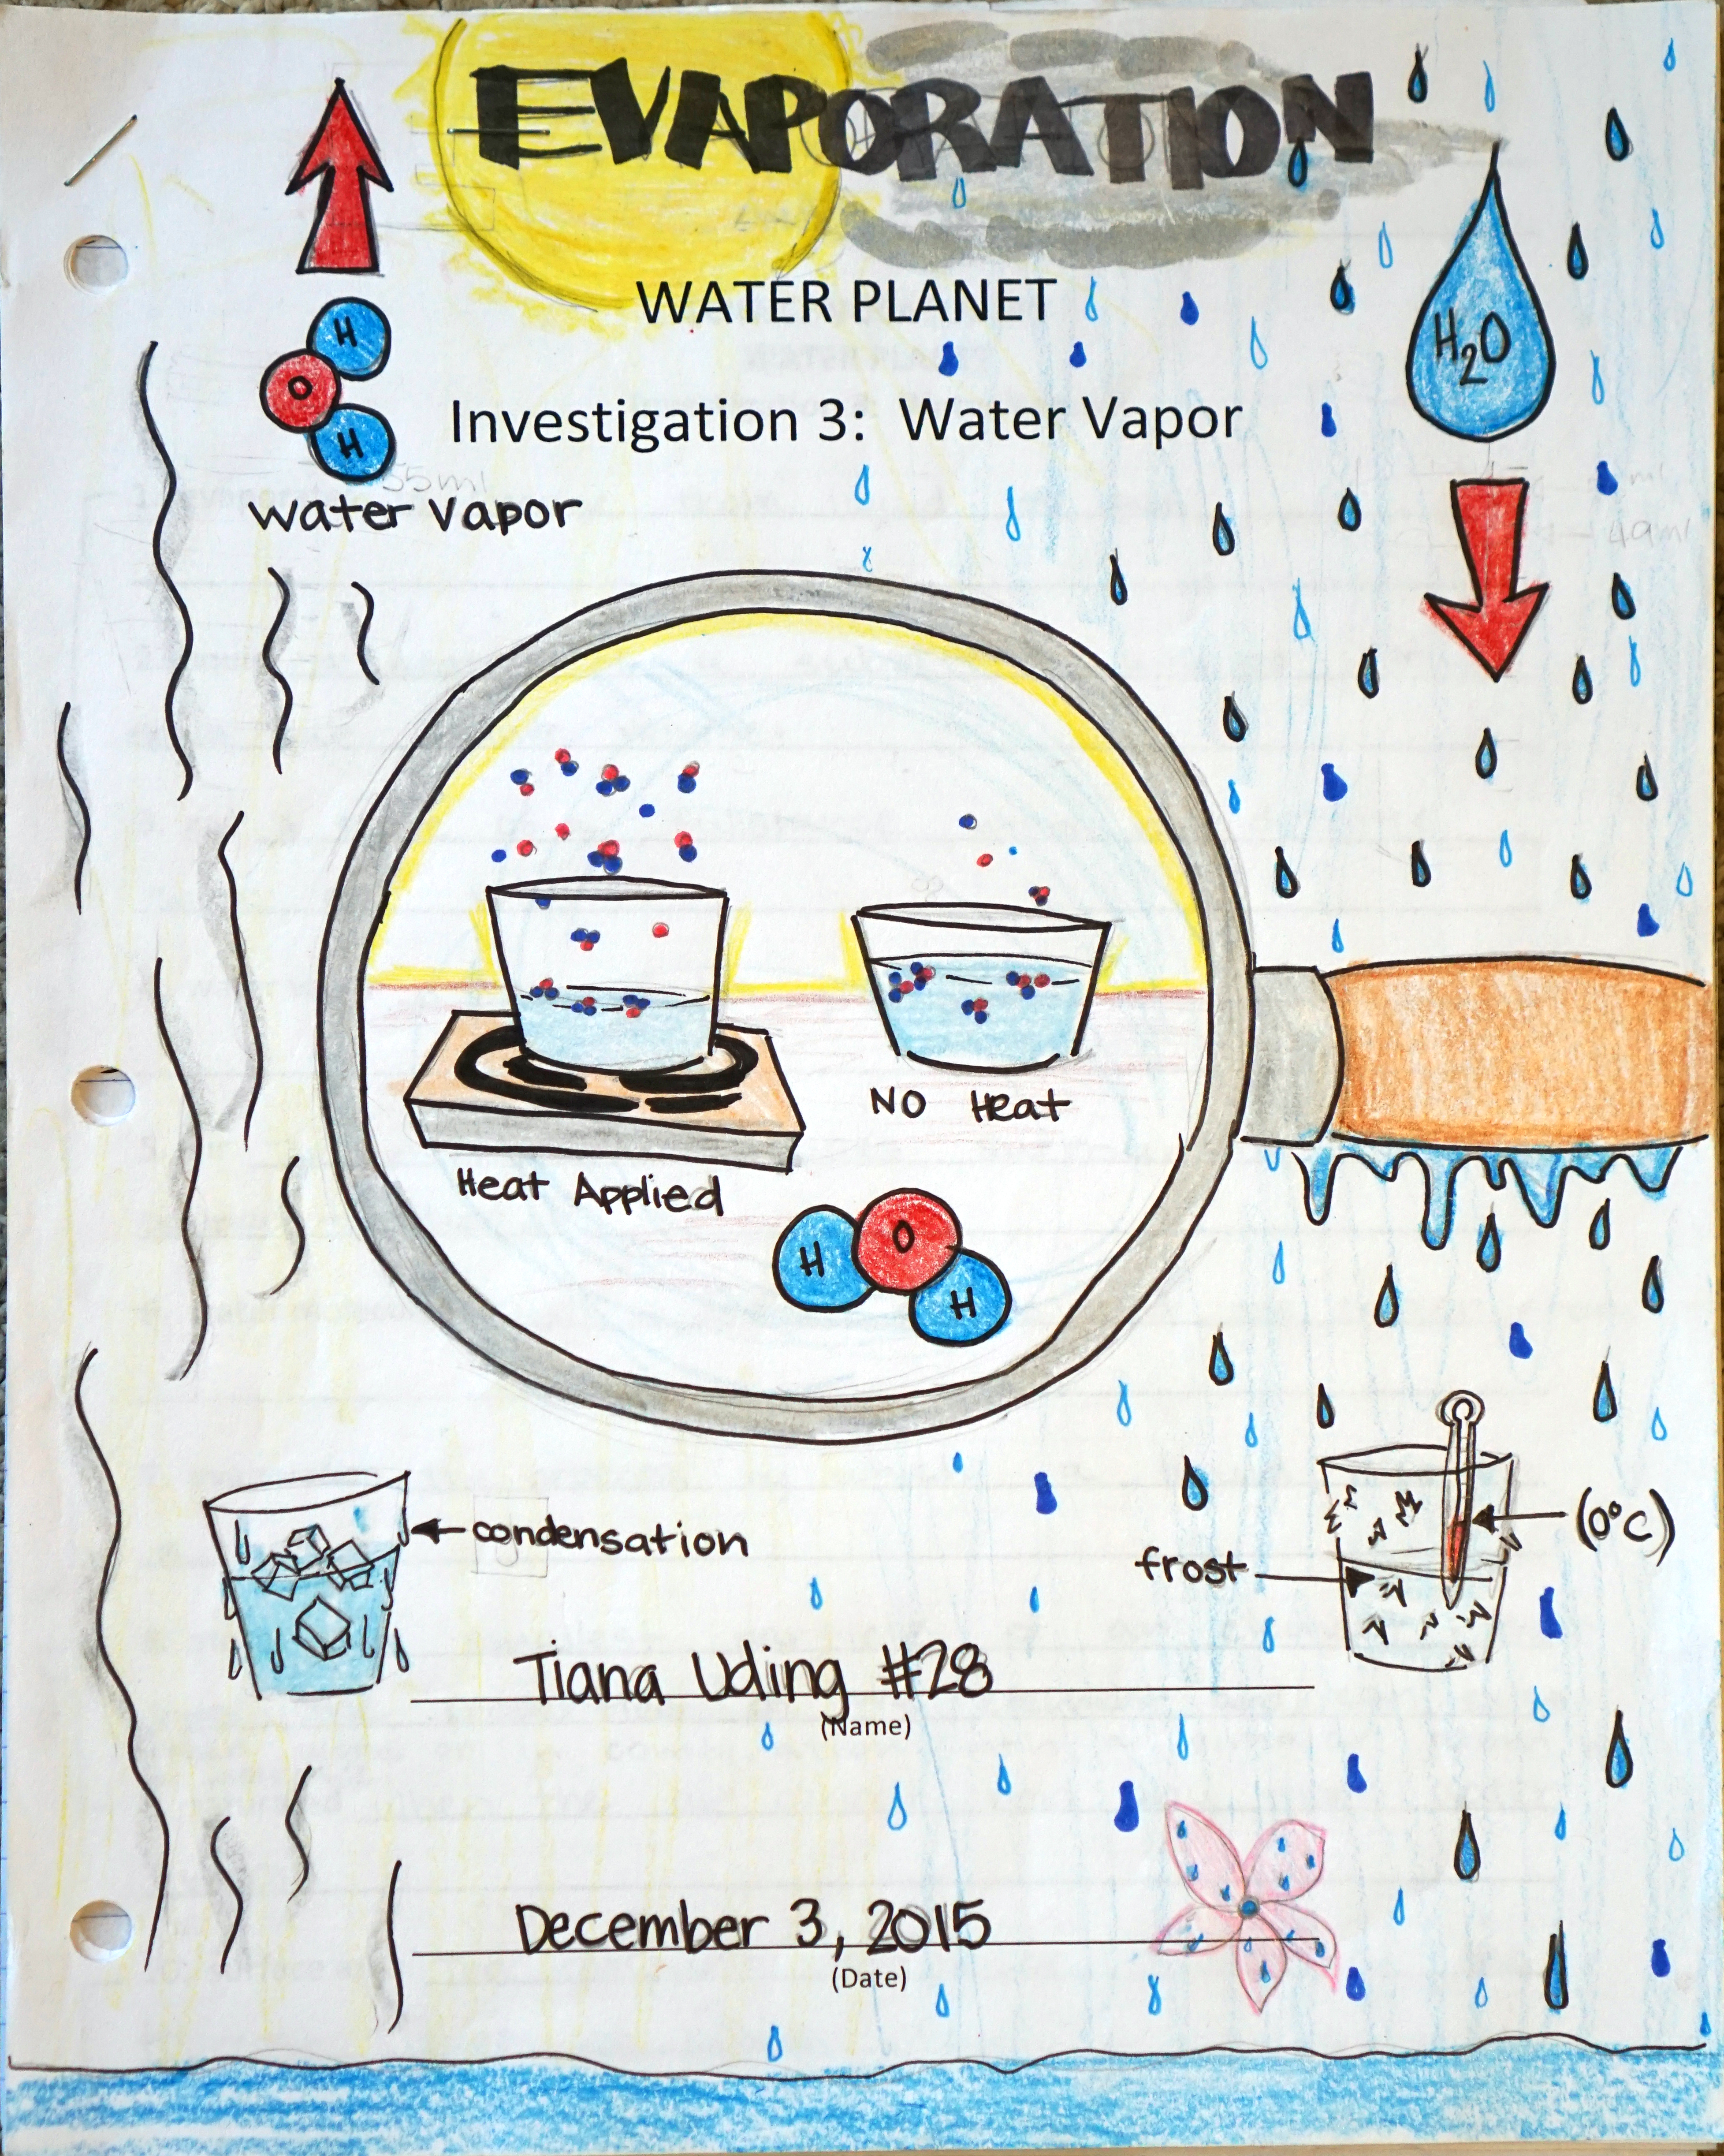 EVAPORATION
WATER PLANET
Investigation 3: Water Vapor
H
O
H
55ml
water vapor
H2O
49ml
NO Heat
Heat Applied
H
O
H
condensation
frost
(0°C)
Tiana Uding #28
(Name)
December 3, 2015
(Date)